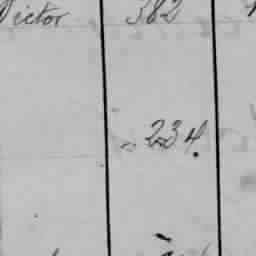 Victor 382
234.